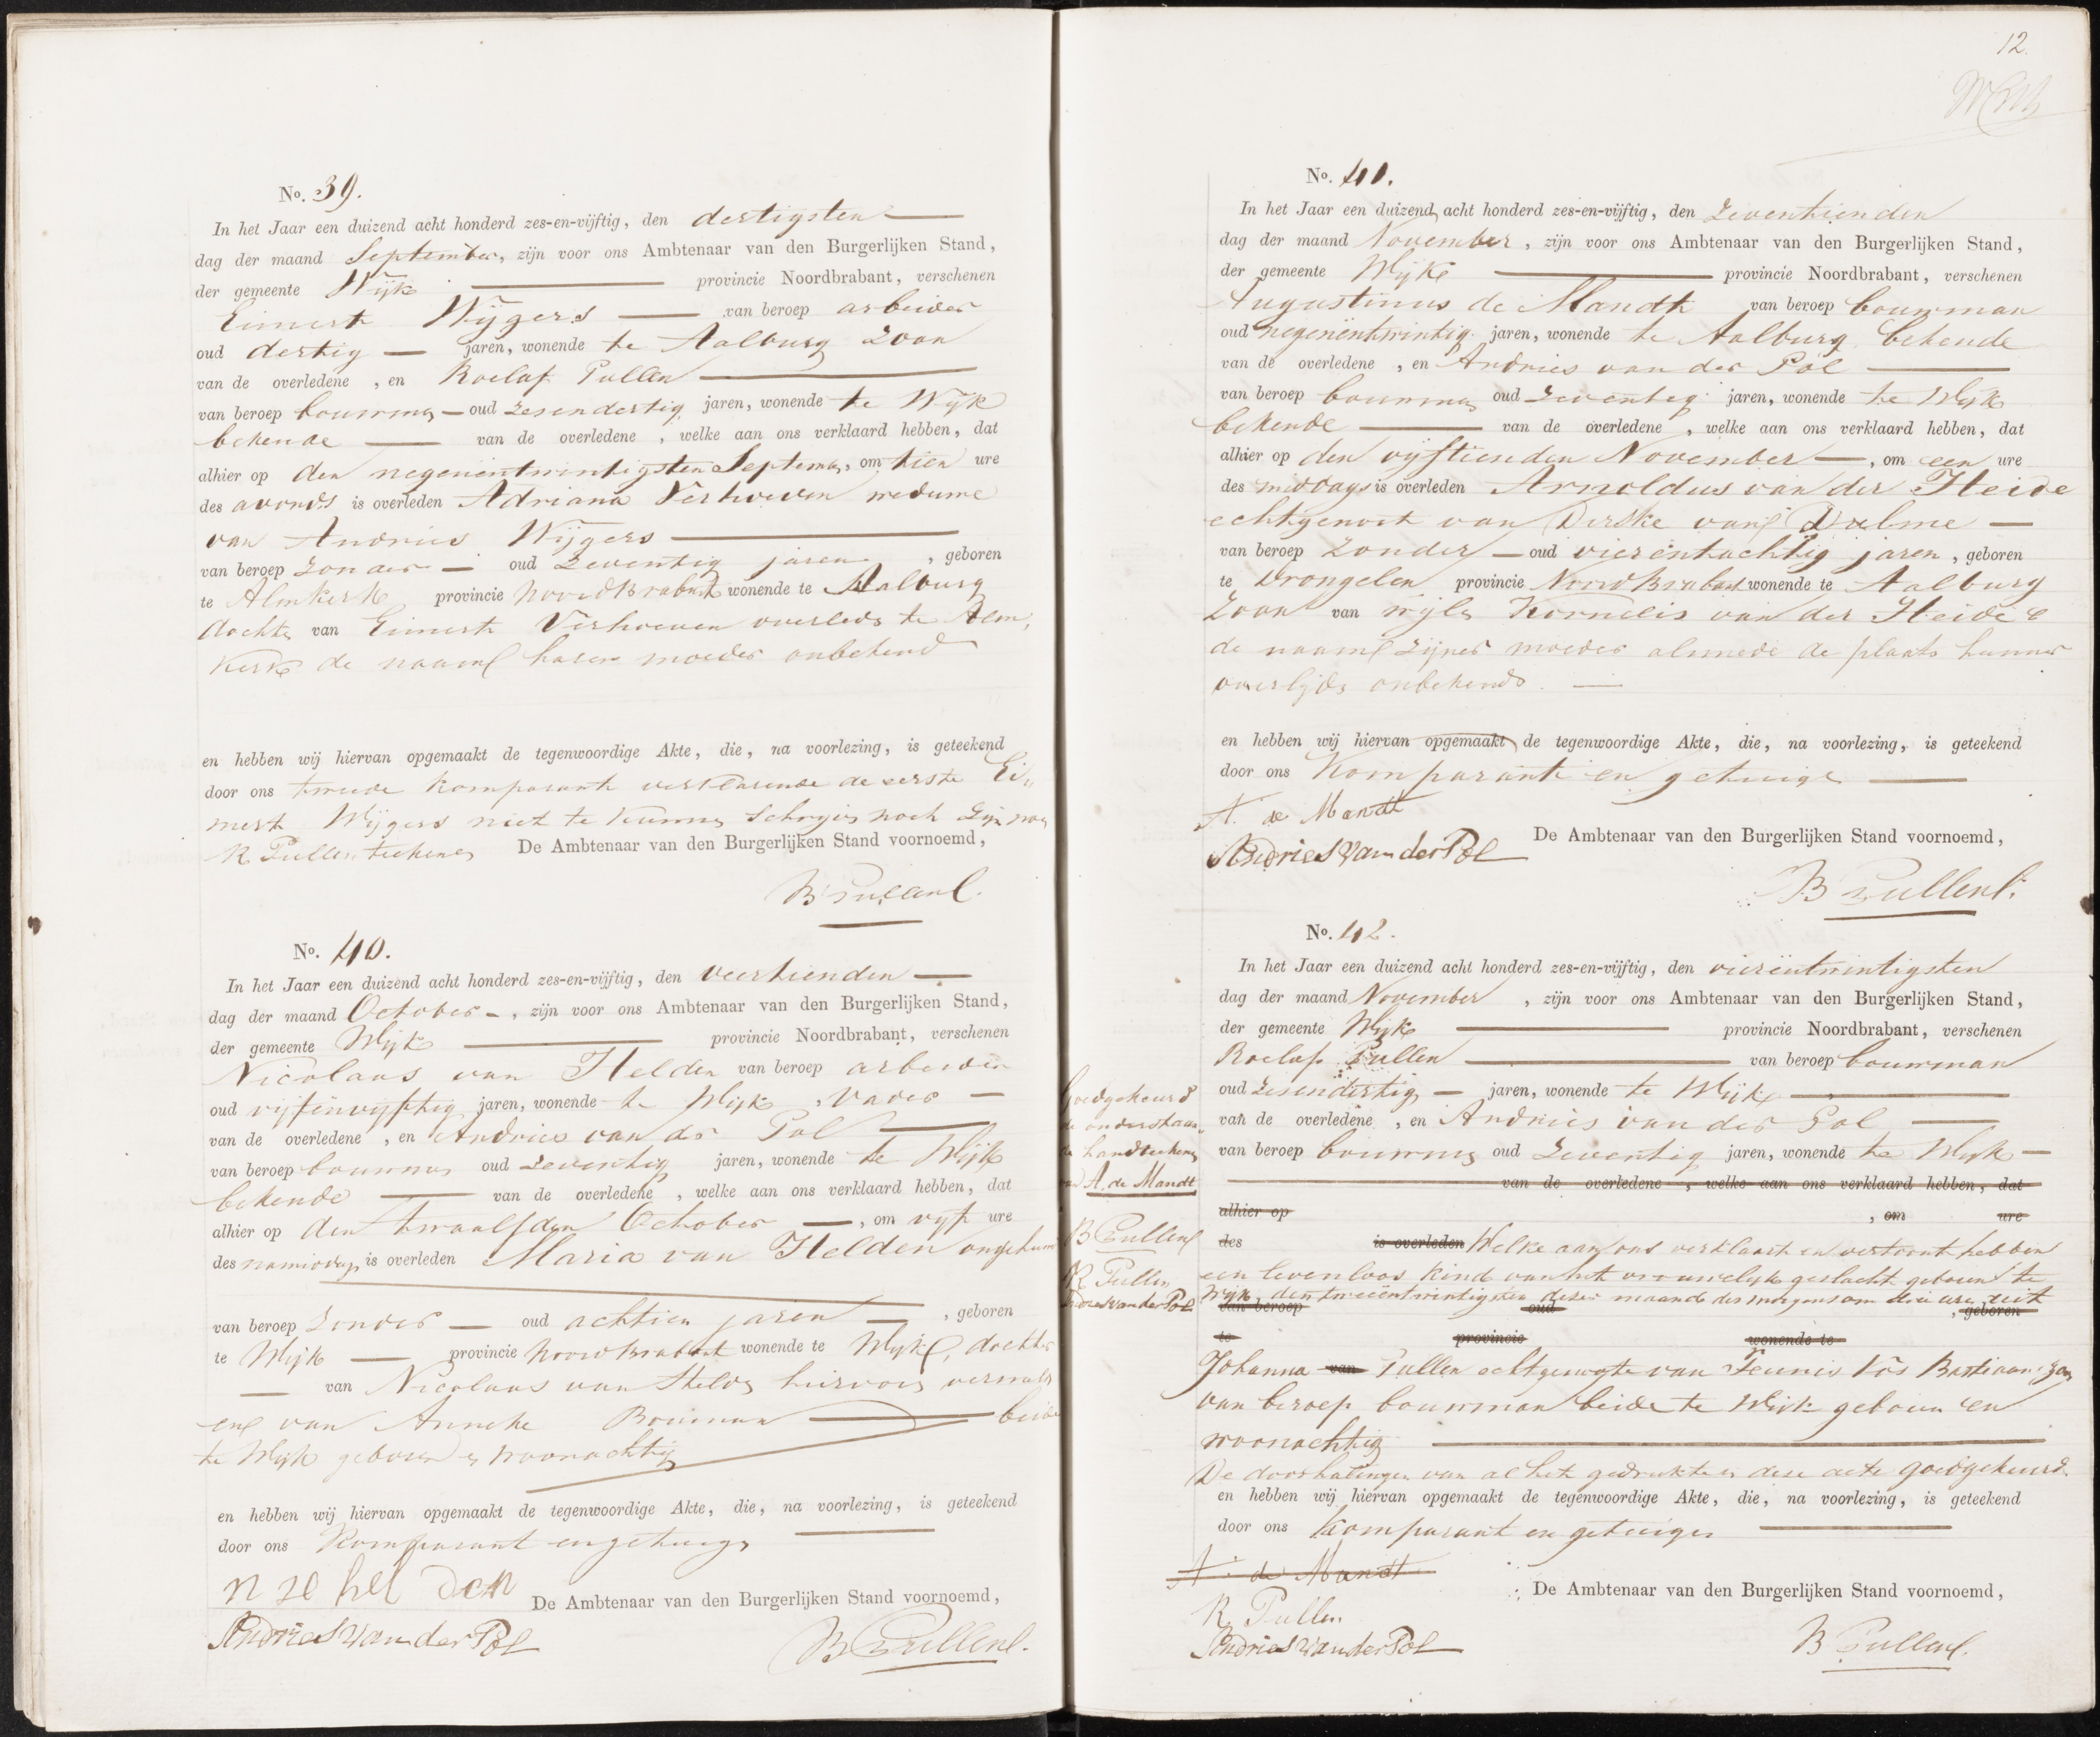 No. 39.
In het Jaar een duizend acht honderd zes-en-vijftig, den dertigsten
dag der maand September, zijn voor ons Ambtenaar van den Burgerlijken Stand,
der gemeente Wijk provincie Noordbrabant, verschenen
Eimert Wijgers van beroep arbeider
oud dertig jaren, wonende te Aalburg zoon
van de overledene , en Roelof Pullen
van beroep bouwman oud zesendertig jaren, wonende te Wijk
bekende van de overledene , welke aan ons verklaard hebben, dat
alhier op den negenentwintigsten September, om tien ure
des avonds is overleden Adriana Verhoeven weduwe
van Andries Wijgers
van beroep zonder oud zeventig jaren , geboren
te Almkerk provincie Noordbrabant wonende te Aalburg
dochter van Eimert Verhoeven overleden te Alm,
kerk de naam harer moeder onbekend
en hebben wij hiervan opgemaakt de tegenwoordige Akte, die, na voorlezing, is geteekend
door ons tweede komparant verklarende de eerste Ei,,
mert Wijgers niet te kunnen schrijven noch zijn naam
R Pullen teekenen De Ambtenaar van den Burgerlijken Stand voornoemd,
B Pullen
No. 40.
In het Jaar een duizend acht honderd zes-en-vijftig, den veertienden
dag der maand October , zijn voor ons Ambtenaar van den Burgerlijken Stand,
der gemeente Wijk provincie Noordbrabant, verschenen
Nicolaas van Helden van beroep arbeider
oud vijfenvijftig jaren, wonende te Wijk , vader
van de overledene , en Andries van der Pol
van beroep bouwman oud zeventig jaren, wonende te Wijk
bekende van de overledene , welke aan ons verklaard hebben, dat
alhier op den twaalfden October , om vijf ure
des namiddags is overleden Maria van Helden ongehuwd
van beroep zonder oud achtien jaren , geboren
te Wijk provincie Noordbrabant wonende te Wijk, dochter
van Nicolaas van Helden hiervoren vermeld
en van Anneke Bouman beide
te Wijk geboren en woonachtig
en hebben wij hiervan opgemaakt de tegenwoordige Akte, die, na voorlezing, is geteekend
door ons Komparant en getuige
De Ambtenaar van den Burgerlijken Stand voornoemd,
Andries van der Pol
B Pullen
12.
No. 41.
In het Jaar een duizend acht honderd zes-en-vijftig, den zeventienden
dag der maand November , zijn voor ons Ambtenaar van den Burgerlijken Stand,
der gemeente Wijk provincie Noordbrabant, verschenen
Augustinus de Mandt van beroep bouwman
oud negenentwintig jaren, wonende te Aalburg bekende
van de overledene , en Andries van der Pol
van beroep bouwman oud zeventig jaren, wonende te Wijk
bekende van de overledene , welke aan ons verklaard hebben, dat
alhier op den vijftienden November , om een ure
des middags is overleden Arnoldus van der Heide
echtgenoot van Dirske van Dalme
van beroep zonder oud vierentachtig jaren , geboren
te Drongelen provincie Noordbrabant wonende te Aalburg
zoon van wijle Kornelis van der Heide &
de naam zijner moeder almede de plaats hunner
overlijden onbekend.
en hebben wij hiervan opgemaakt de tegenwoordige Akte, die, na voorlezing, is geteekend
door ons Komparant en getuige
A. de Mandt
Andries van der Pol De Ambtenaar van den Burgerlijken Stand voornoemd,
B Pullen
No. 42.
In het Jaar een duizend acht honderd zes-en-vijftig, den vierentwintigsten
dag der maand November , zijn voor ons Ambtenaar van den Burgerlijken Stand,
der gemeente Wijk provincie Noordbrabant, verschenen
Roelof Pullen van beroep bouwman
oud zesendertig jaren, wonende te Wijk
van de overledene , en Andries van der Pol
van beroep bouwman oud zeventig jaren, wonende te Wijk
van de overledene , welke aan ons verklaard hebben, dat
alhier op , om ure
des is overleden Welke aan ons verklaart en vertoont hebben
een levenloos kind van het vrouwelijk geslacht geboren te
Wijk den tweeentwintigsten dezer maand des morgens om drie ure uit
van beroep oud , geboren
te provincie wonende te
Johanna van Pullen echtgenoote van Teunis Vos Bastiaan zoon
van beroep bouwman beide te Wijk geboren en
woonachtig
De doorhalingen van al het gedrukte in deze acte goedgekeurd.
en hebben wij hiervan opgemaakt de tegenwoordige Akte, die, na voorlezing, is geteekend
door ons Komparant en getuigen
A. de Mandt
De Ambtenaar van den Burgerlijken Stand voornoemd,
R. Pullen
Andries van der Pol
B Pullen
Goedgekeurd
de onderstaan
de handteekening
A. de Mandt
B Pullen
R Pullen
Andries van der Pol